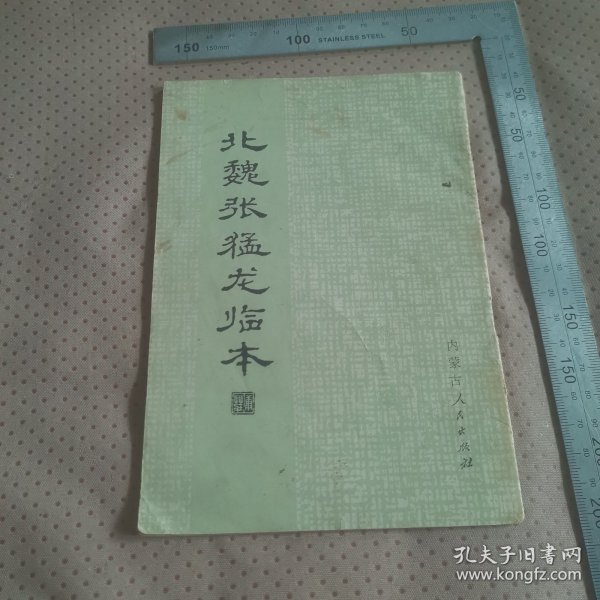 北魏张猛龙临本
内蒙古人民出版社
150 150mm 100 STAINLESS STEEL 50
50
100
150
200
孔夫子旧书网
www.kongfz.com